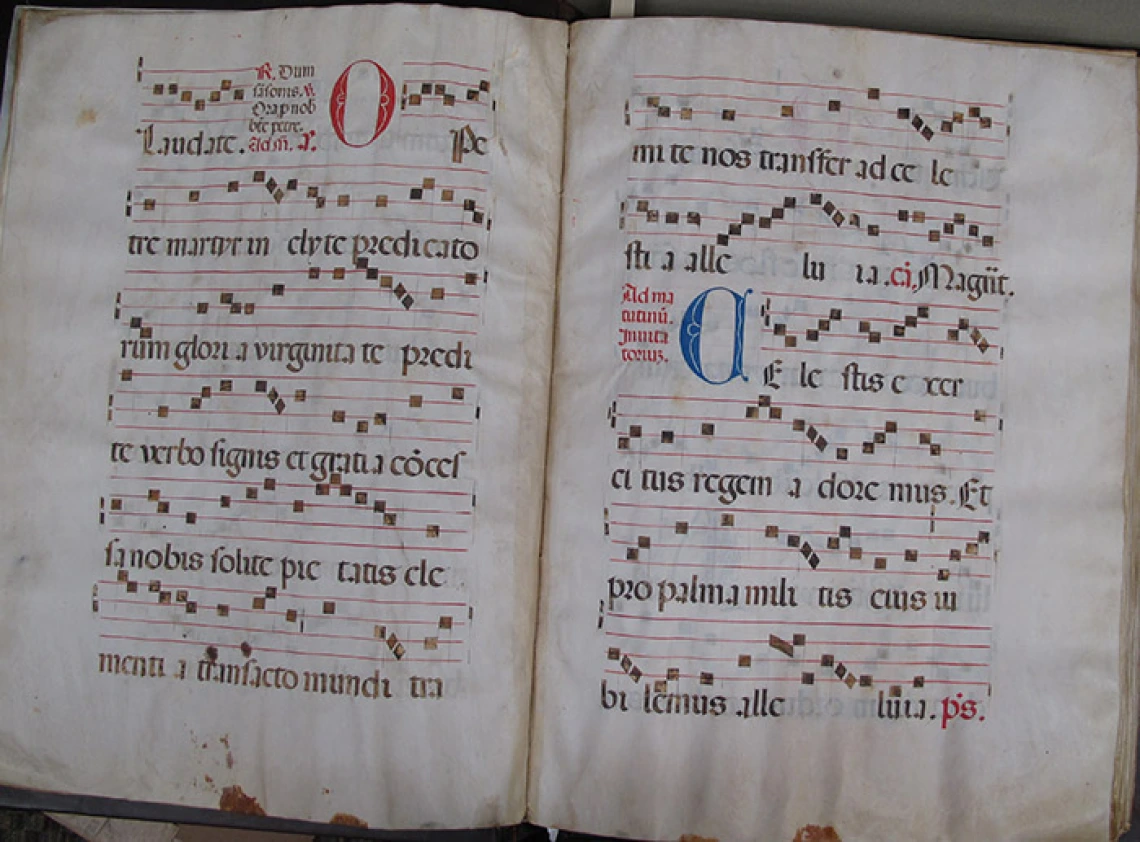 Laudate. R. Dum
sāsonis. V.
Ora p nob
bte petre.
Ad m̄. a. O Pe
tre martyr in clyte predicato
rum glori a virginita te predi
te verbo signis et grati a cōcel
sa nobis solite pie tatis cle
menti a transacto mundi tra
mi te nos transfer ad ce le
sti a alle lu ia. cā. Magūt.
Ad ma
tutinū.
Inuita
toriuz. C E le stis e xer
ci tus regem a dore mus. Et
pro palma mili tis eius iu
bi lemus alle luia. p̄s.